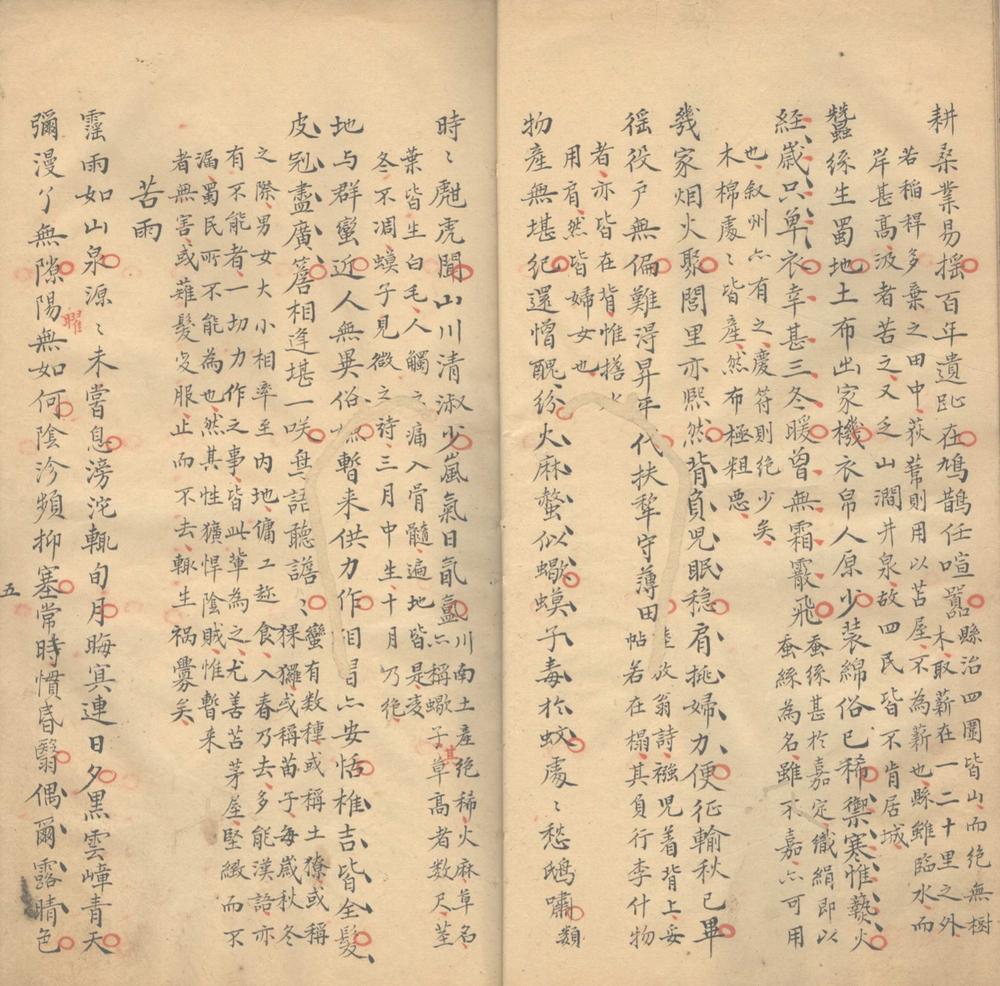 耕桑業易搖百年遺趾在鳩鵲任喧囂
縣治四圍皆山而絶無樹
木取薪在一二十里之外
若稻稈多棄之田中荻葦則用以苫屋不為薪也縣雖臨水而
岸甚高汲者苦之又乏山澗井泉故四民皆不肯居城
蠶絲生蜀地土布出家機衣帛人原少裝綿俗已稀禦寒惟爇火
経歳只単衣幸甚三冬暖曾無霜霰飛
蚕絲甚於嘉定織絹即以
蚕絲為名雖不嘉亦可用
也叙州亦有之慶符則絶少矣
木棉處〻皆産然布極粗悪
幾家烟火聚閭里亦熙然背負児眠穏肩挑婦力便征輸秋已畢
徭役戸無偏難得昇平代扶犂守薄田
放翁詩襁児着背上妥
帖若在榻其負行李什物
者亦皆在背惟擔水
用肩然皆婦女也
物産無堪紀還憎醜紛火麻螫似蠍蟆子毒於蚊處〻愁鴟嘯類
時〻虺虎聞山川清淑少嵐氣日氤氳
川南土産絶稀火麻草名
亦稱蠍子草髙者数尺其茎
葉皆生白毛人觸之痛入骨髓遍地皆是凌
冬不凋蟆子見微之詩三月中生十月乃絶
地与群蠻近人無異俗嫌暫来供力作相習亦安恬椎吉皆全髮
皮冠盡廣簷相逢堪一咲異語聽譫〻
蠻有数種或稱土獠或稱
猓玀或稱苗子每歳秋冬
之際男女大小相率至内地傭工趂食入春乃去多能漢語亦
有不能者一切力作之事皆此輩為之尤善苫茅屋堅緻而不
漏蜀民所不能為也然其性獷悍陰賊惟暫来
者無害或薙髮变服止而不去輒生禍釁矣
苦雨
霪雨如山泉源〻未嘗息滂沱輒旬月晦㝠連日夕黒雲嶂青天
彌漫了無隙陽曜無如何陰沴頻抑塞常時慣昏翳偶爾露晴色
五